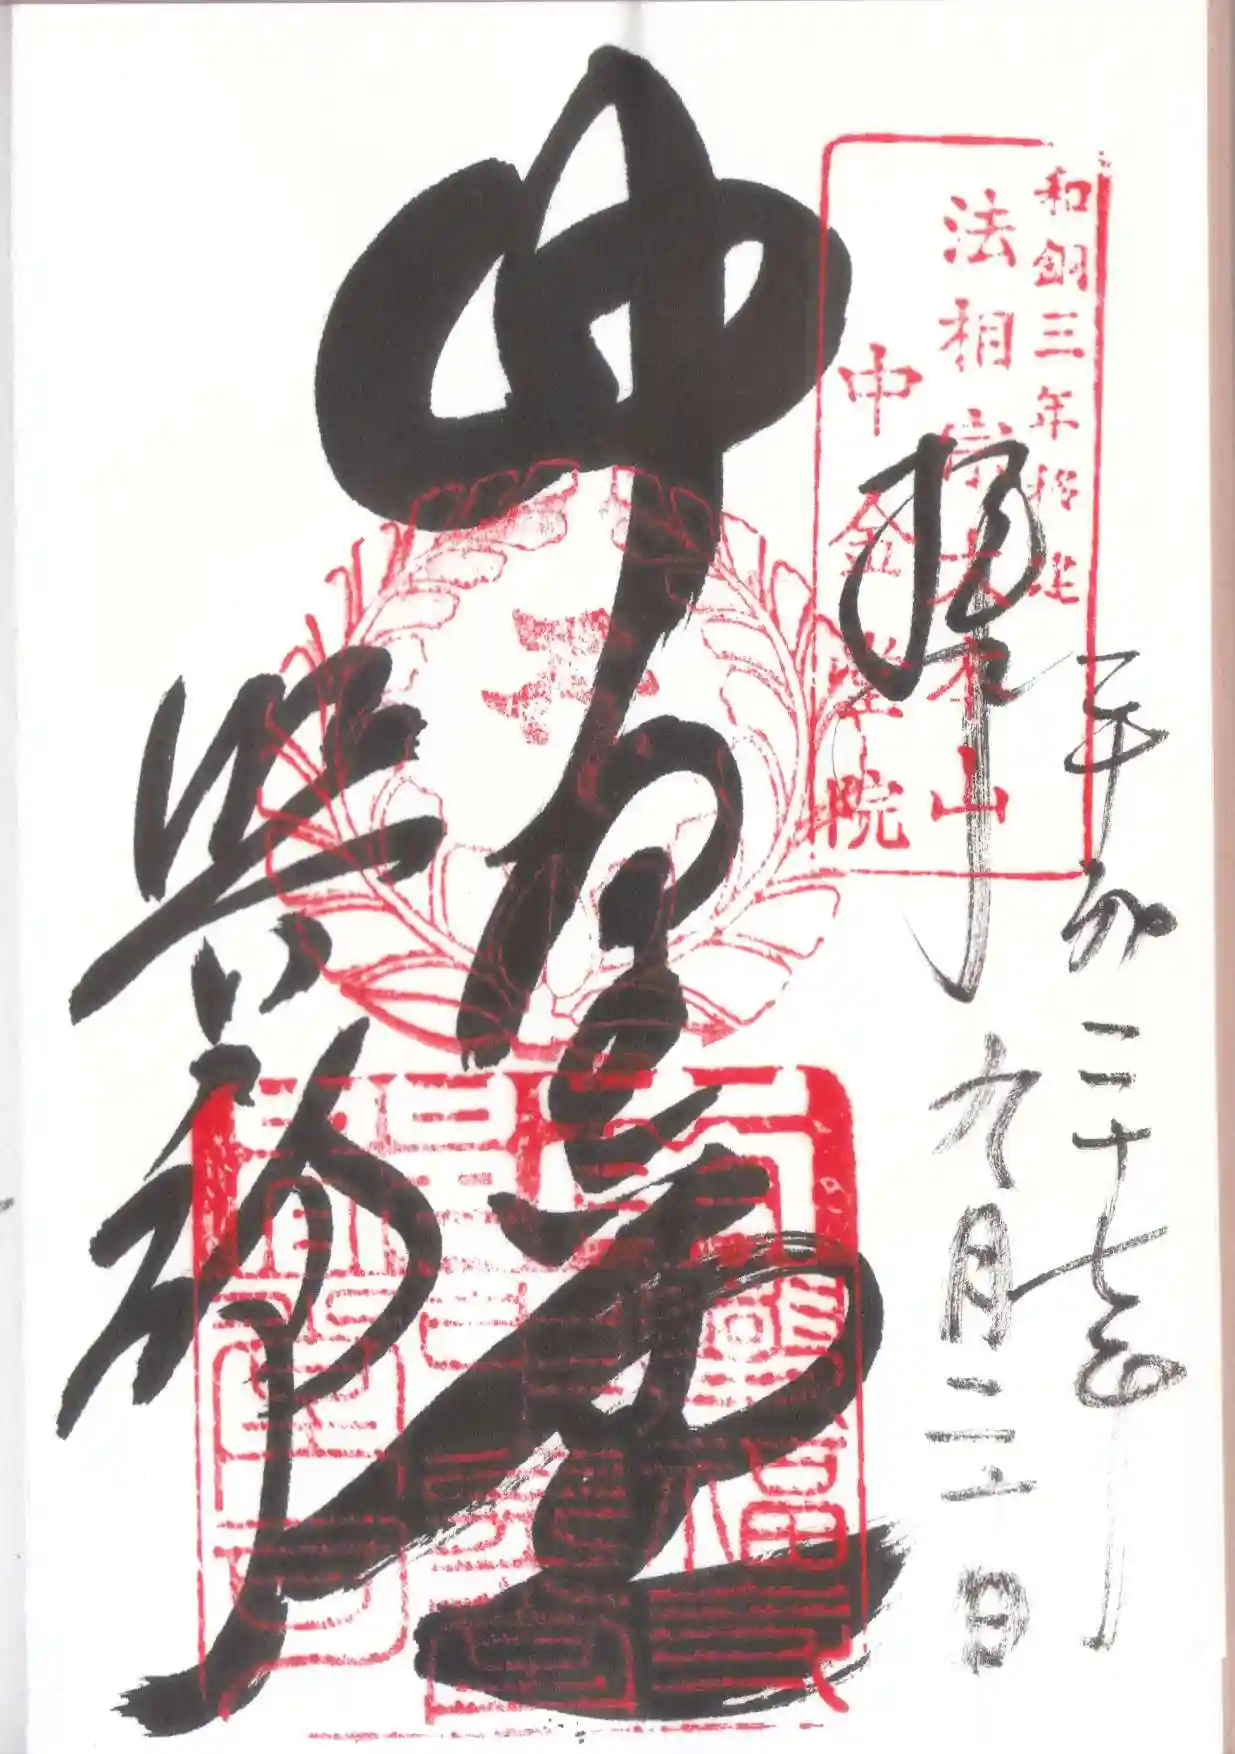 和銅三年移建
法相宗大本山
中金堂院
平成二十七年
九月二十日
拝
中金堂
興福寺